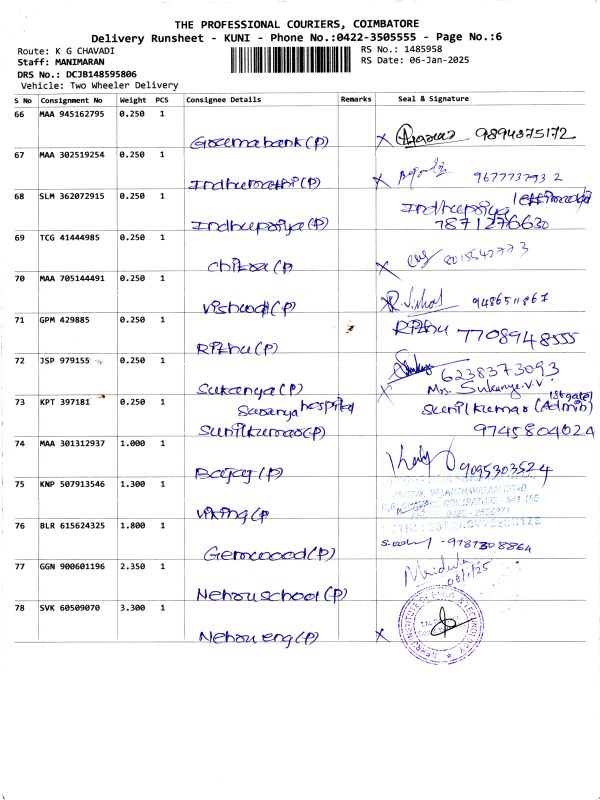 THE PROFESSIONAL COURIERS, COIMBATORE
Delivery Runsheet - KUNI - Phone No.:0422-3505555 - Page No.:6
Route: K G CHAVADI
RS No.: 1485958
Staff: MANIMARAN
RS Date: 06-Jan-2025
DRS No.: DCJB148595806
Vehicle: Two Wheeler Delivery
S No Consignment No Weight PCS Consignee Details Remarks Seal & Signature
66 MAA 945162795 0.250 1
Goremabank(P) X 9894375172
67 MAA 302519254 0.250 1
Indhumathi(P) X
68 SLM 362072915 0.250 1
Indhupriya(P) Indhupriya
7871276630
69 TCG 41444985 0.250 1
Chitra(P) X
70 MAA 705144491 0.250 1
Vishnu(P) X 9486511867
71 GPM 429885 0.250 1
Rithu(P) Rithu 7708948555
72 JSP 979155 0.250 1
Sukanya(P) X 6238373093
Mrs. Sukanya.V.V
73 KPT 397181 0.250 1
Saranya hospital
Sunilkumar(P) Sunilkumar (Admin)
9745804024
74 MAA 301312937 1.000 1
Bajaj(P) 9095303524
75 KNP 507913546 1.300 1
Viking(P
76 BLR 615624325 1.800 1
Gemwood(P) 9787308864
77 GGN 900601196 2.350 1
Nehru school(P)
78 SVK 60509070 3.300 1
Nehru eng(P) X